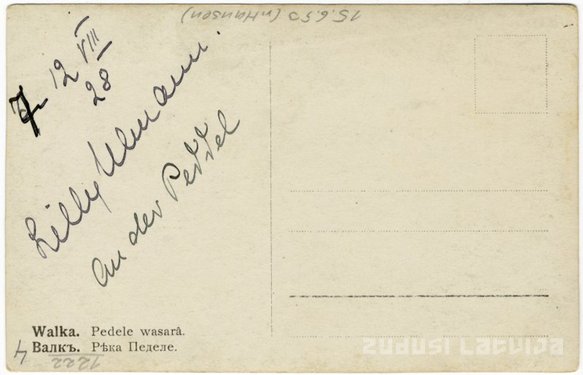 15.6.50 (v. Hansen)
12 VIII
28
Lilly Ulmann.
an der Peddel
Walka. Pedele wasarâ.
Валкъ. Рѣка Педеле.
4
1222
zudusi Latvija